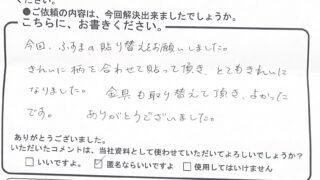 ください。
●ご依頼の内容は、今回解決出来ましたでしょうか。
こちらに、お書きください。
今回、ふすまの貼り替えをお願いしました。
きれいに柄を合わせて貼って頂き、とてもきれいに
なりました。 金具も取り替えて頂き、よかった
です。 ありがとうございました。
ありがとうございました。
いただいたコメントは、当社資料として使わせていただいてよろしいでしょうか?
□いいですよ。 ☑匿名ならいいですよ □使用してはいけません